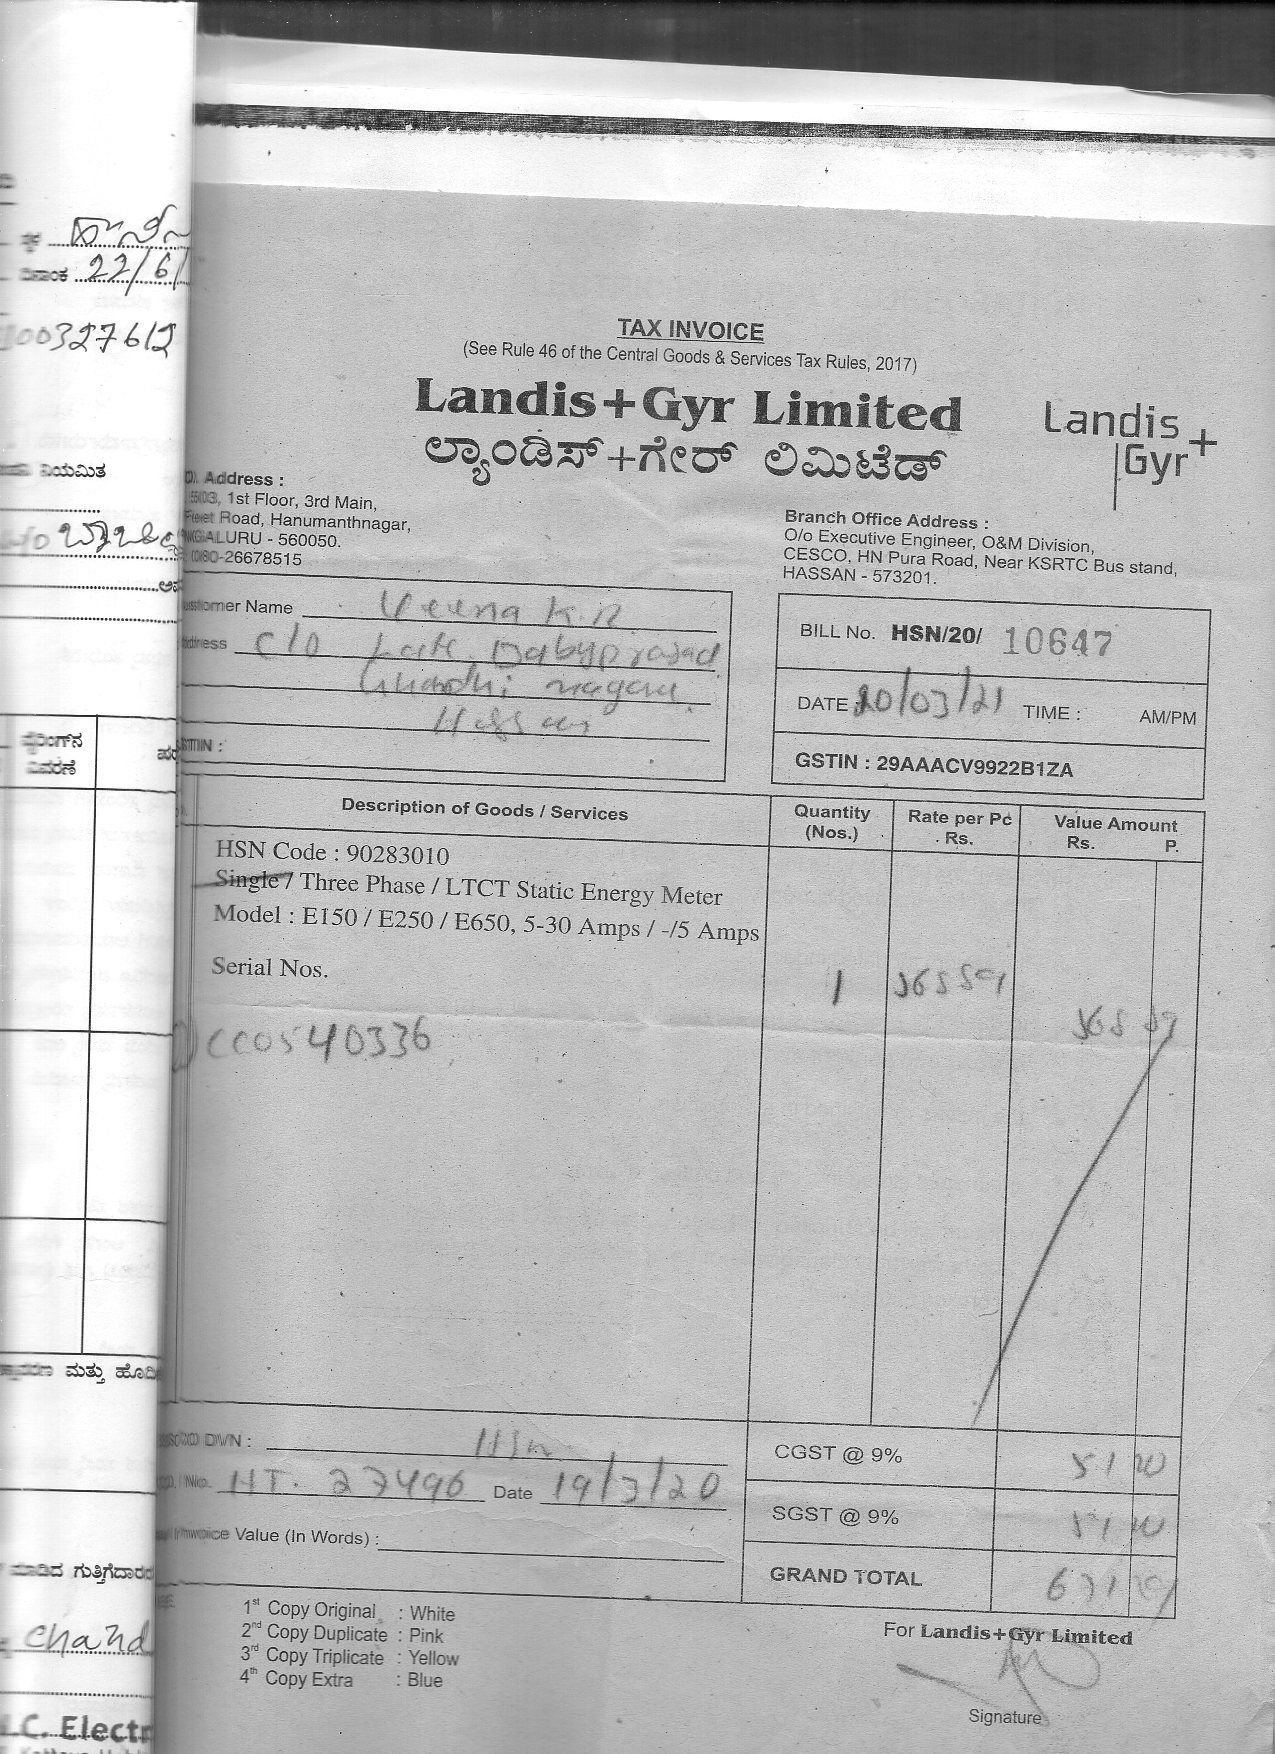 22/6/
00327612
ನಿಯಮಿತ
ವೈರಿಂಗ್‌ನ
ವಿವರಣೆ
ಮತ್ತು
ಮಾಡಿದ ಗುತ್ತಿಗೆದಾರರ
Chand
.C. Electr
TAX INVOICE
(See Rule 46 of the Central Goods & Services Tax Rules, 2017)
Landis+Gyr Limited
ಲ್ಯಾಂಡಿಸ್+ಗೇರ್ ಲಿಮಿಟೆಡ್
Landis
Gyr+
Address :
1st Floor, 3rd Main,
Road, Hanumanthnagar,
- 560050.
-26678515
Branch Office Address :
O/o Executive Engineer, O&M Division,
CESCO, HN Pura Road, Near KSRTC Bus stand,
HASSAN - 573201.
Customer Name Veena K.R.
Address C/o Late
Hassan
GSTIN :
BILL No. HSN/20/ 10647
DATE : 20/03/21 TIME : AM/PM
GSTIN : 29AAACV9922B1ZA
Description of Goods / Services
Quantity
(Nos.)
Rate per Pc
Rs.
Value Amount
Rs. P.
HSN Code : 90283010
Single / Three Phase / LTCT Static Energy Meter
Model : E150 / E250 / E650, 5-30 Amps / -/5 Amps
Serial Nos.
1
CC0540336
DVN : HSN
No. HT. 27496 Date 19/3/20
Invoice Value (In Words) :
CGST @ 9%
SGST @ 9%
GRAND TOTAL
1st Copy Original : White
2nd Copy Duplicate : Pink
3rd Copy Triplicate : Yellow
4th Copy Extra : Blue
For Landis+Gyr Limited
Signature